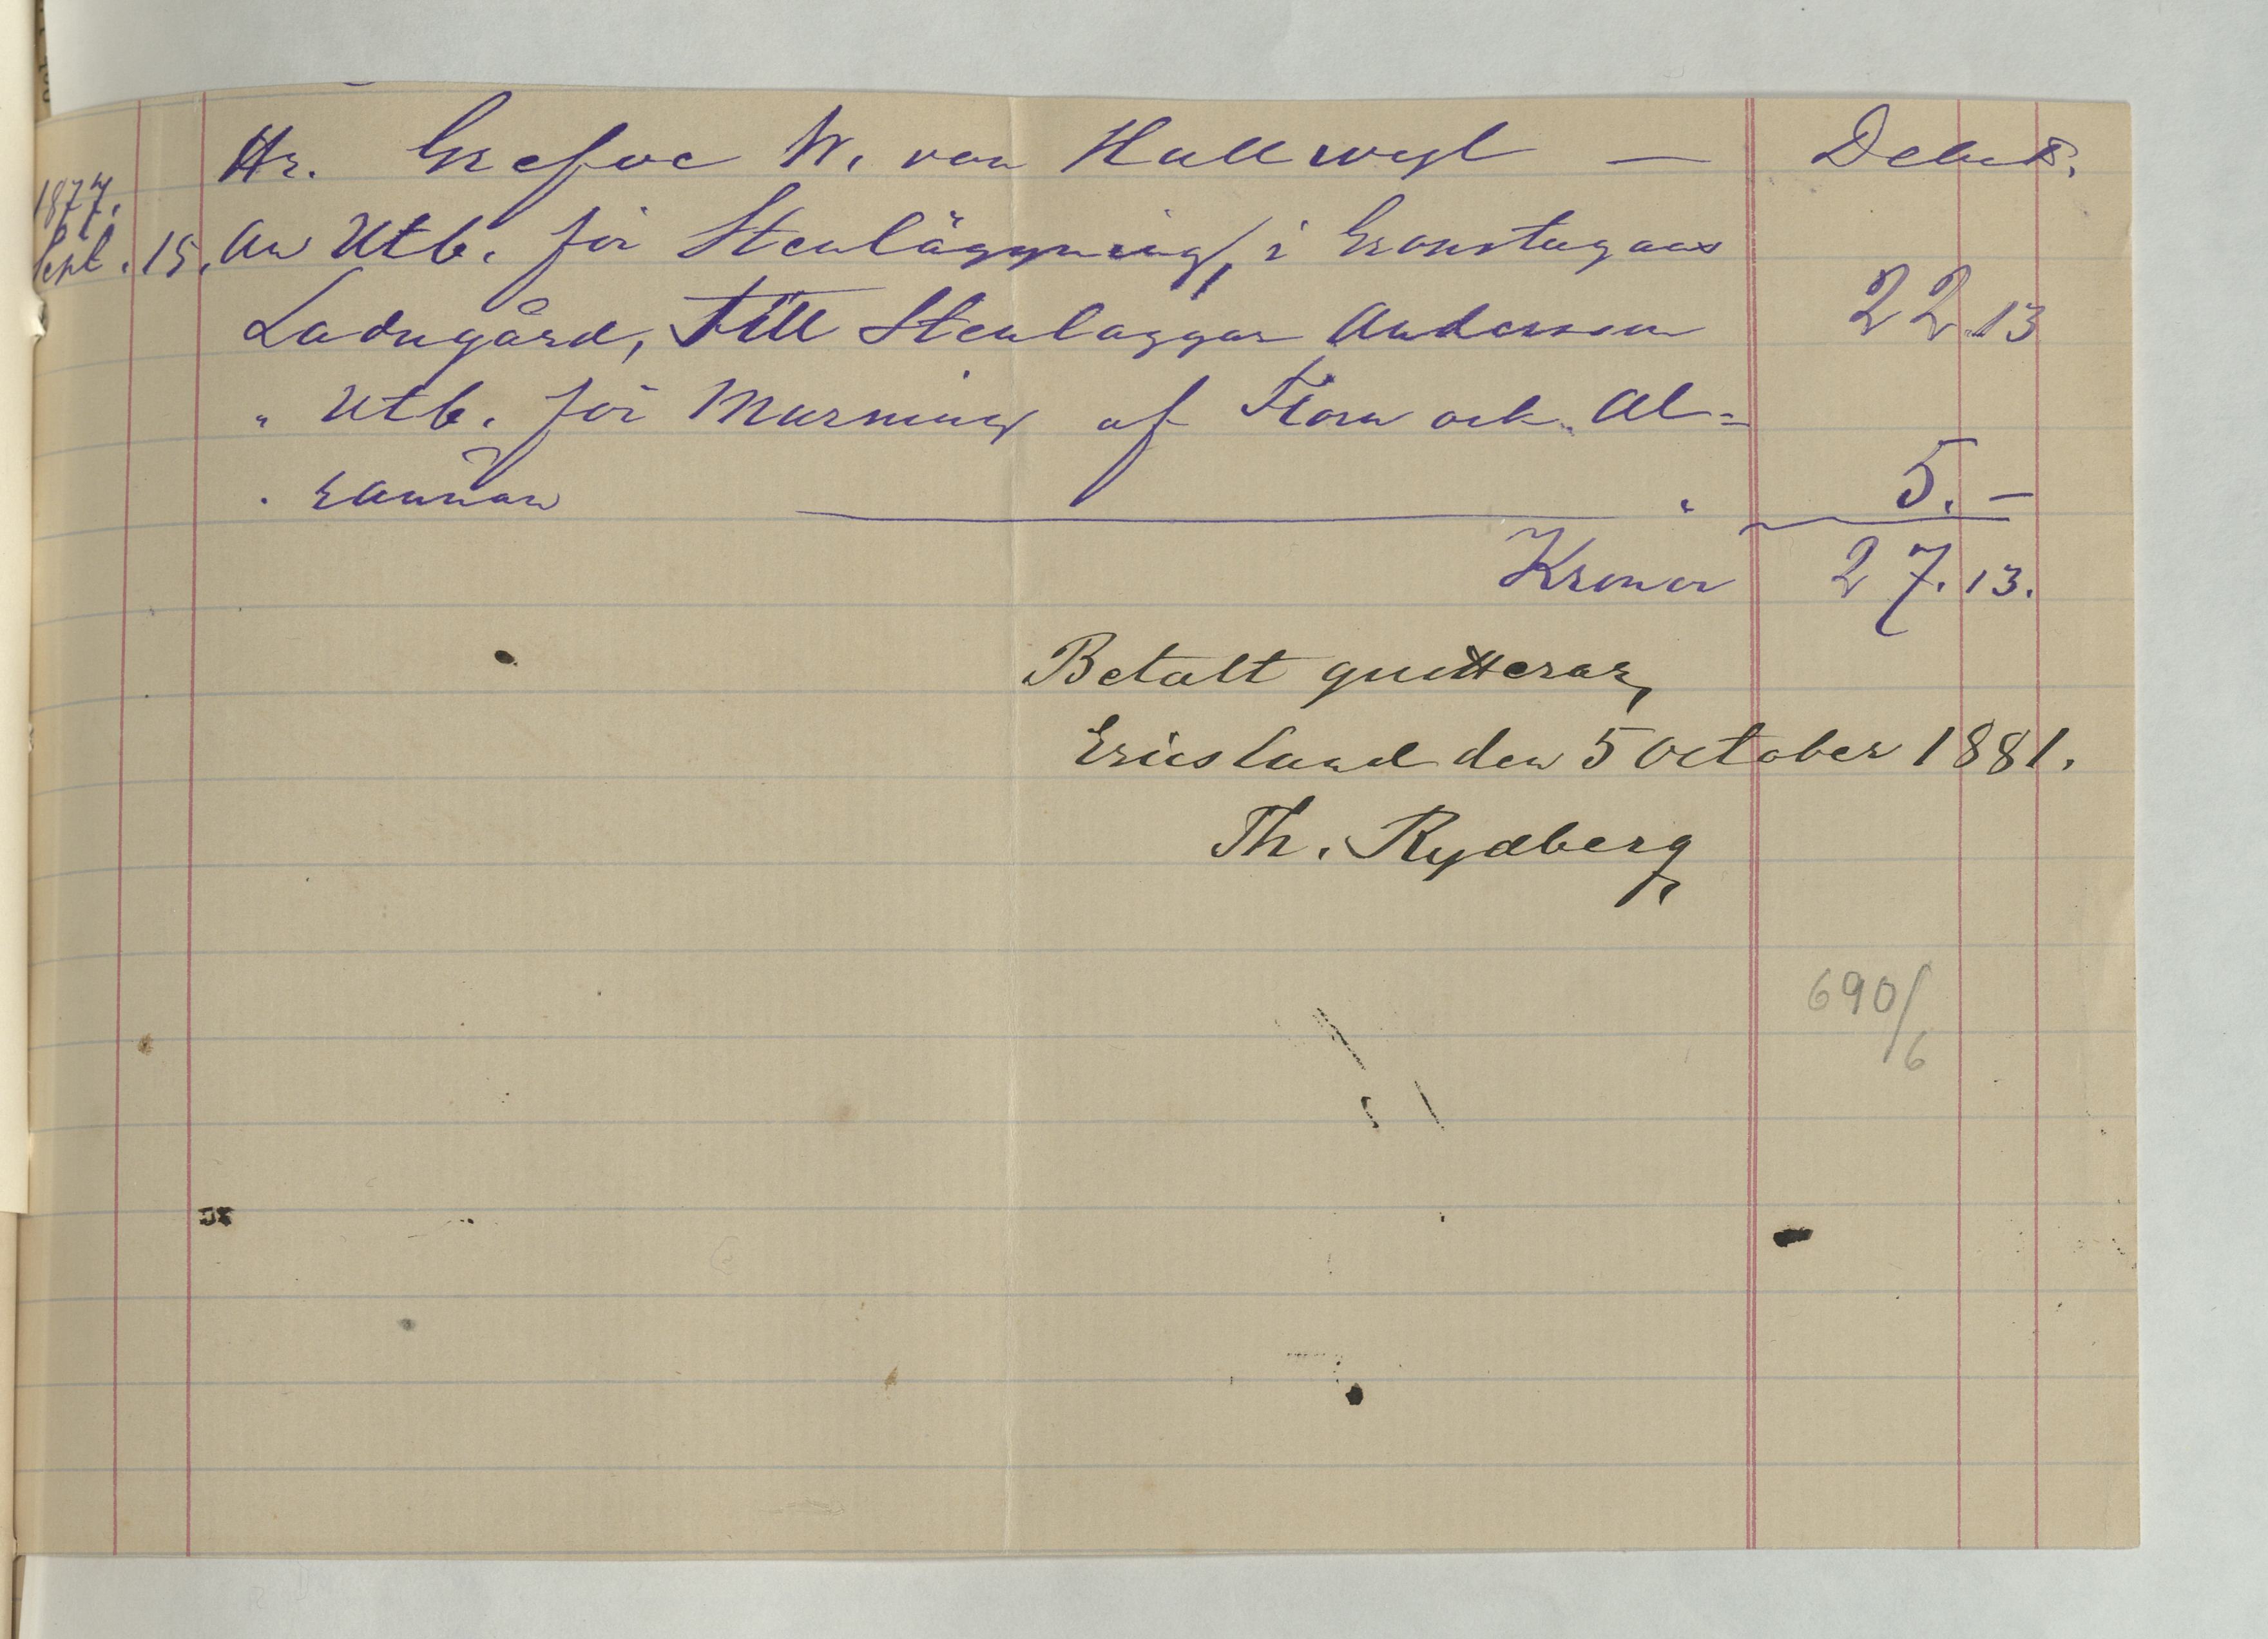 Hr. Grefve W. von Hallwyl — Debet.
1877.
Sept. 15. An Utb. för Stenläggning i Grönstugans
Ladugård, till Stenläggar Anderson 22.13
" Utb. för Murning af och Al=
" 5.—
Kronor 27.13.
Betalt quitteras,
Ericslund den 5 October 1881.
Th. Rydberg
690/6